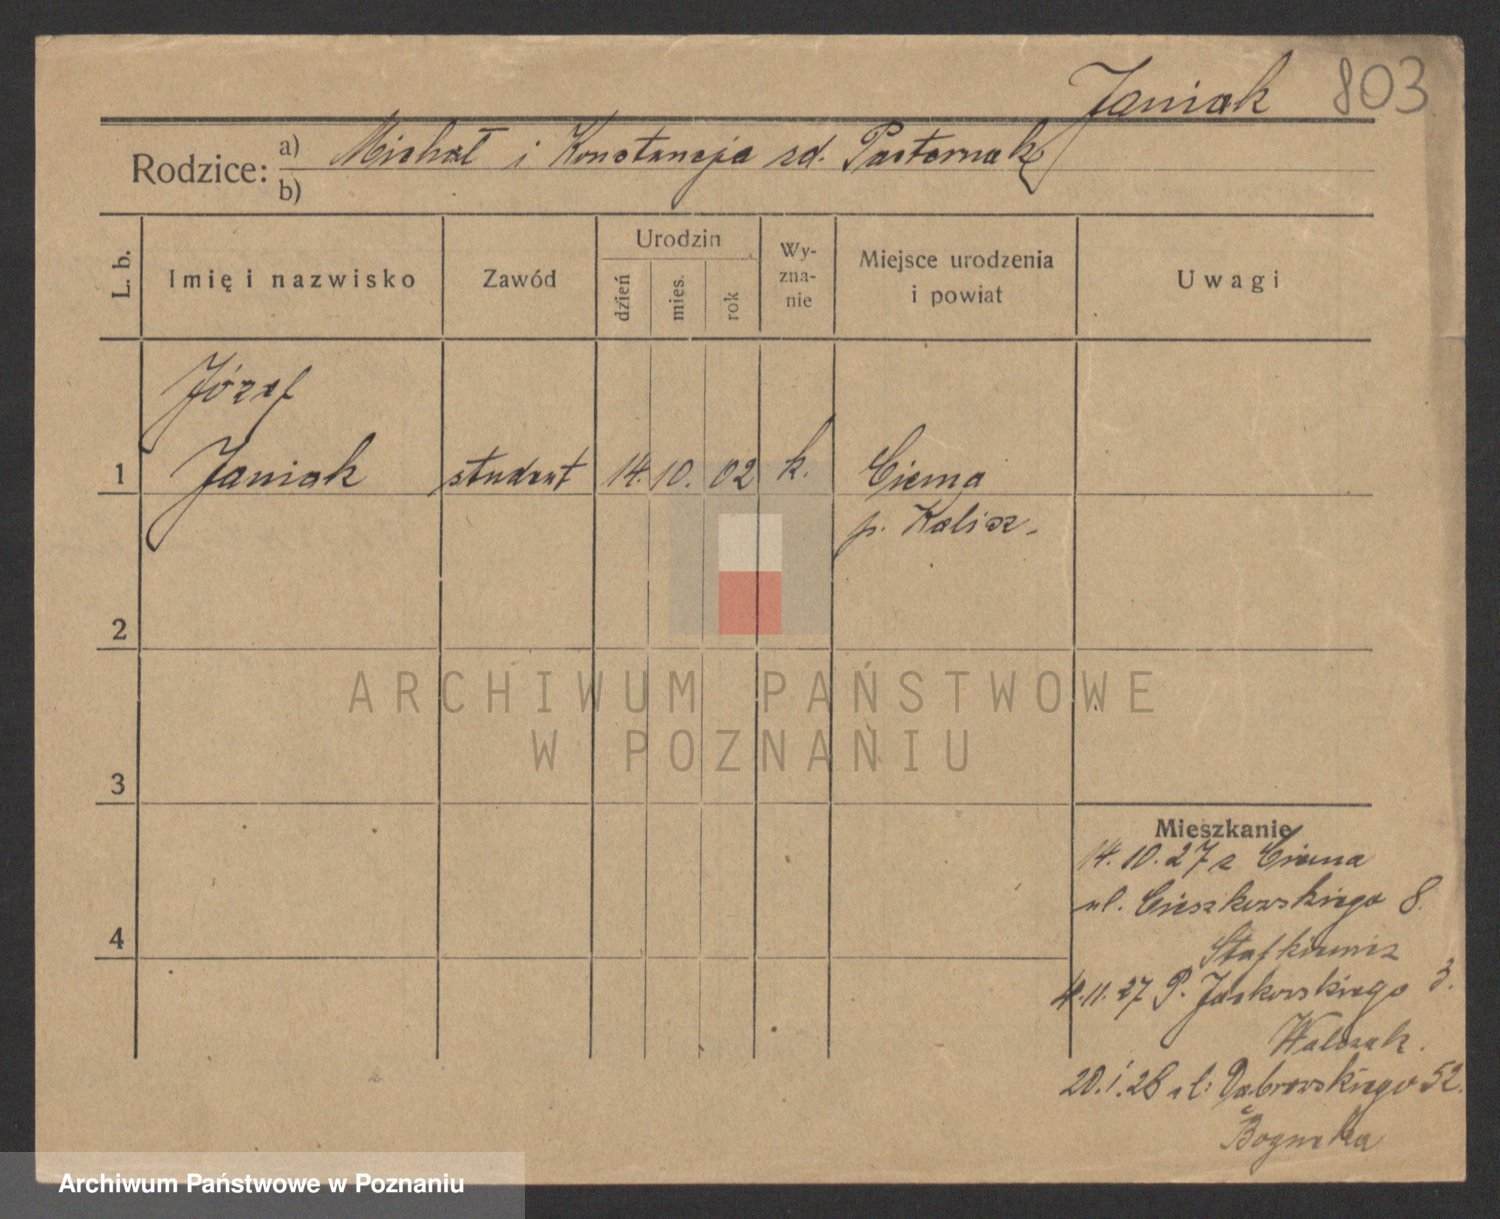 Janiak 803
Rodzice: a) Michał i Konstancja zd. Pasternak
b)
L. b. Imię i nazwisko Zawód Urodzin dzień mies. rok Wy-zna-nie Miejsce urodzenia i powiat Uwagi
Józef
1 Janiak student 14. 10. 02 k. Ciema
p. Kalisz.
2
ARCHIWUM PAŃSTWOWE
W POZNANIU
3
Mieszkanie
14.10.27 z Ciema
ul. Cieszkowskiego 8.
4
4.11.27 P. Jackowskiego 3.
Walczak.
20.1.28 ul. Dąbrowskiego 52.
Archiwum Państwowe w Poznaniu